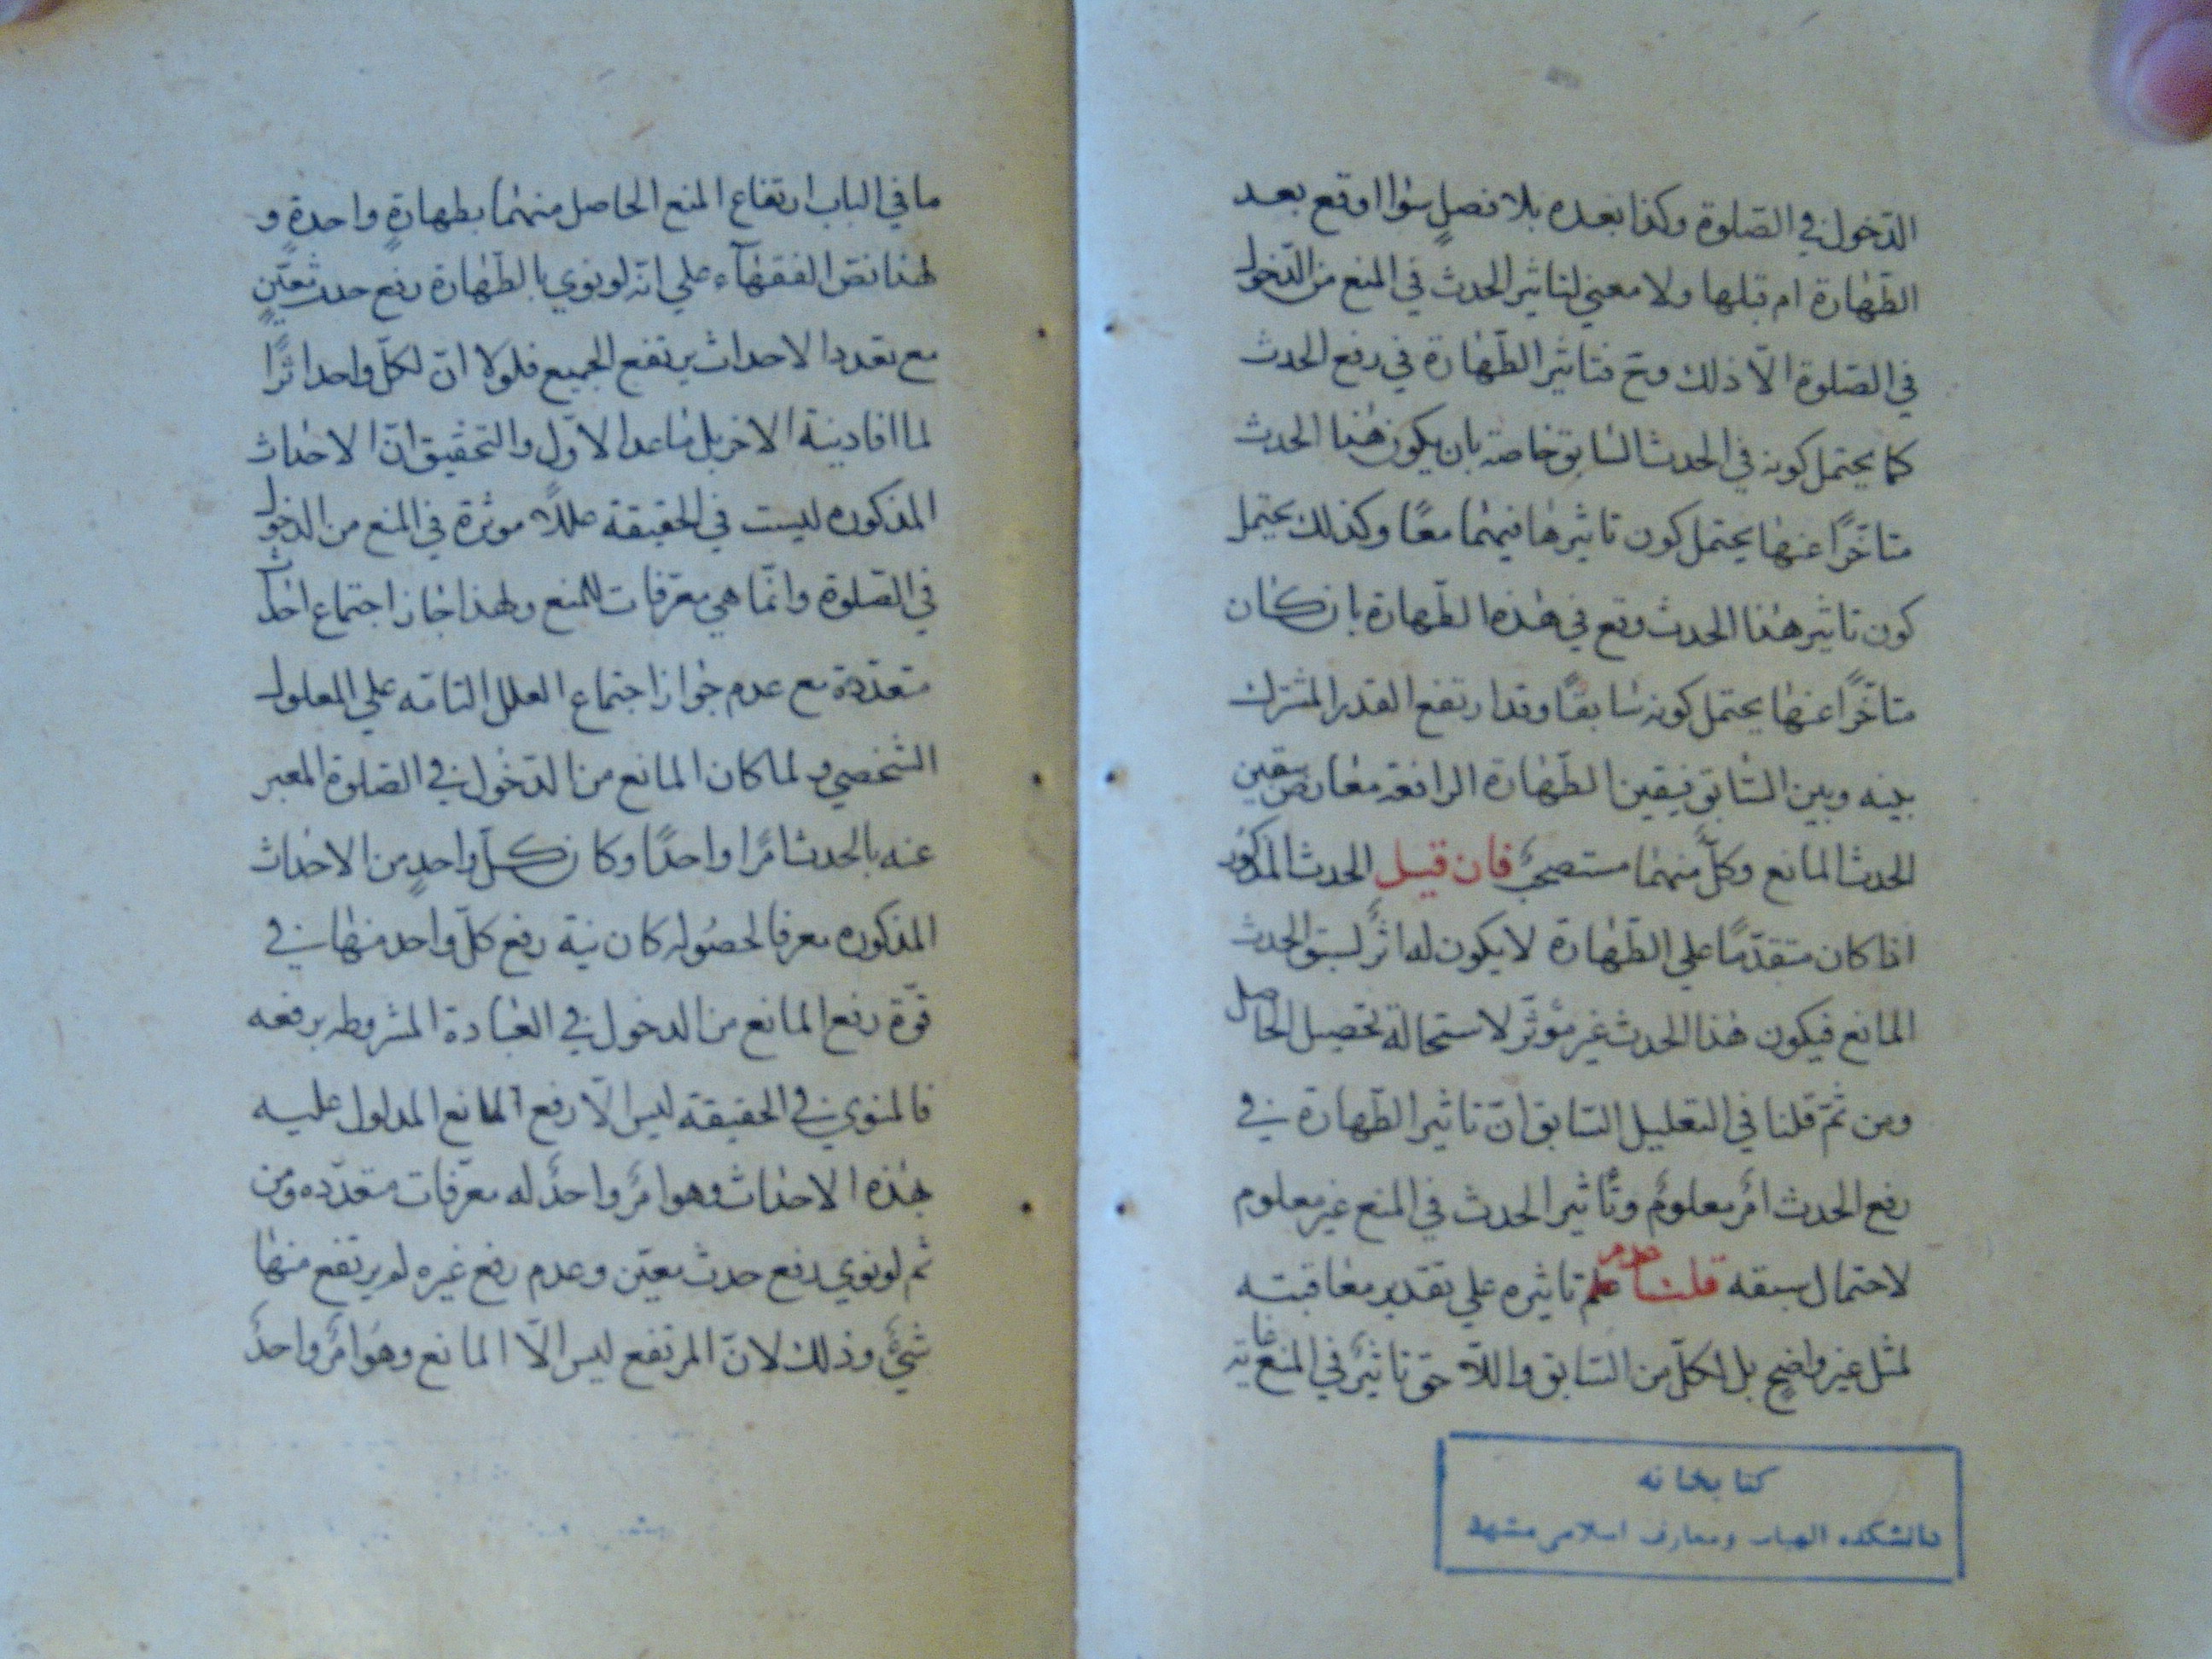 الدّخول في الصّلوة وكذا بعده بلا فصلٍ سوٰا اوقع بعد
الطّهٰارة ام قبلها ولا معني لتاثير الحدث في المنع من الدّخول
في الصّلوة الّا ذلك وح فتاثير الطّهٰارة في رفع الحدث
كما يحتمل كونه في الحدث السّابق خاصة بان يكون هٰذا الحدث
متاخّرًا عنهٰا يحتمل كون تاثيرهٰا فيهمٰا معًا وكذلك يحتمل
كون تاثير هٰذا الحدث وقع في هٰذه الطّهارة بان كٰان
متاخّرًا عنهٰا يحتمل كونه سٰابقًا وقد ارتفع القدر المشترك
بينه وبين السّٰابق فيقين الطّهٰارة الرافعه معٰارض بيقين
الحدث المٰانع وكلٌّ منهمٰا مستصحبٌ فان قيل الحدث المذكور
اذا كان متقدّمًا علي الطّهٰارة لا يكون له اثرٌ لسبق الحدث
المانع فيكون هٰذا الحدث غير مؤثّر لاستحالة تحصيل الحاصل
ومن ثمّ قلنا في التعليل السّابق انّ تاثير الطّهارة في
رفع الحدث امرٌ معلومٌ وتأثير الحدث في المنع غير معلوم
لاحتمال سبقه قلنا عدم تاثيره علي تقدير معٰاقبته
لمثل غير واضحٍ بل لكلّ من السّابق واللّاحق تاثيرٌ في المنع غاية
ما في الباب ارتفاع المنع الحاصل منهمٰا بطهارةٍ واحدةٍ و
لهذا نصّ الفقهٰآء علي انّه لو نوي بالطّهٰارة رفع حدث معيّنٍ
مع تعدد الاحداث يرتفع الجميع فلولا انّ لكلّ واحد اثرًا
لما افاد نية الاخر بل مٰا عدا الاوّل والتحقيق انّ الاحدٰاث
المذكوره ليست في الحقيقة عللًا موثرة في المنع من الدخول
في الصّلوة وانّما هي معرّفات للمنع ولهذا جٰاز اجتماع احداث
متعدّدة مع عدم جوٰاز اجتماع العلل التامّه علي المعلول
الشّخصي ولما كان المانع من الدّخول في الصّلوة المعبر
عنه بالحدث امرًا واحدًا وكان كلّ واحدٍ من الاحدٰاث
المذكوره معرفا لحصوله كان نية رفع كلّ واحد منهٰا في
قوّة رفع المانع من الدخول في العبٰادة المشروطه برفعه
فالمنوي في الحقيقة ليس الّا رفع المانع المدلول عليه
بهٰذه الاحدٰاث وهو امرٌ واحدٌ له معرّفات متعدّده ومن
ثم لو نوي رفع حدث معيّن وعدم رفع غيره لم يرتفع منهٰا
شيءٌ وذلك لانّ المرتفع ليس الّا المانع وهُو امرٌ واحدٌ
كتابخانه
دانشكده الهيات ومعارف اسلامى مشهد